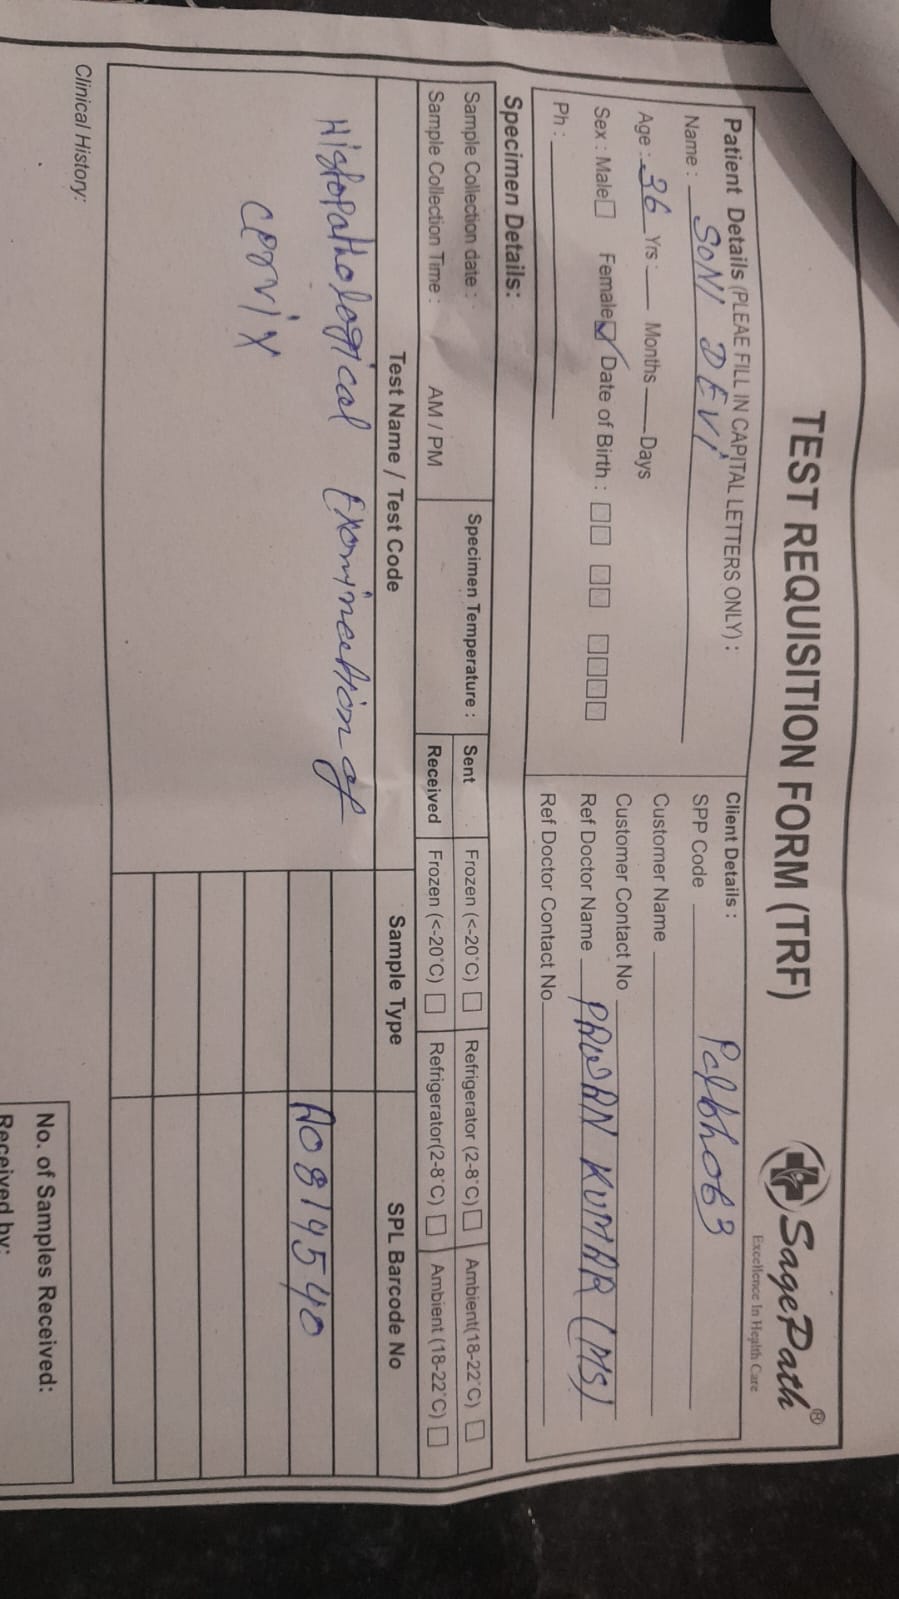 TEST REQUISITION FORM (TRF)
SagePath®
Excellence In Health Care
Patient Details (PLEAE FILL IN CAPITAL LETTERS ONLY) :
Name : SONI DEVI
Age : 36 Yrs : Months Days
Sex : Male Female ✓ Date of Birth :
Ph :
Client Details :
SPP Code
Customer Name
Customer Contact No
Ref Doctor Name PAWAN KUMAR (MS)
Ref Doctor Contact No
Specimen Details:
Sample Collection date :
Sample Collection Time : AM / PM
Specimen Temperature :
Sent Frozen (<-20°C) Refrigerator (2-8°C) Ambient(18-22°C)
Received Frozen (<-20°C) Refrigerator(2-8°C) Ambient (18-22°C)
Test Name / Test Code Sample Type SPL Barcode No
Histopathological Examination of
Cervix
A0814540
Clinical History:
No. of Samples Received:
Received by: